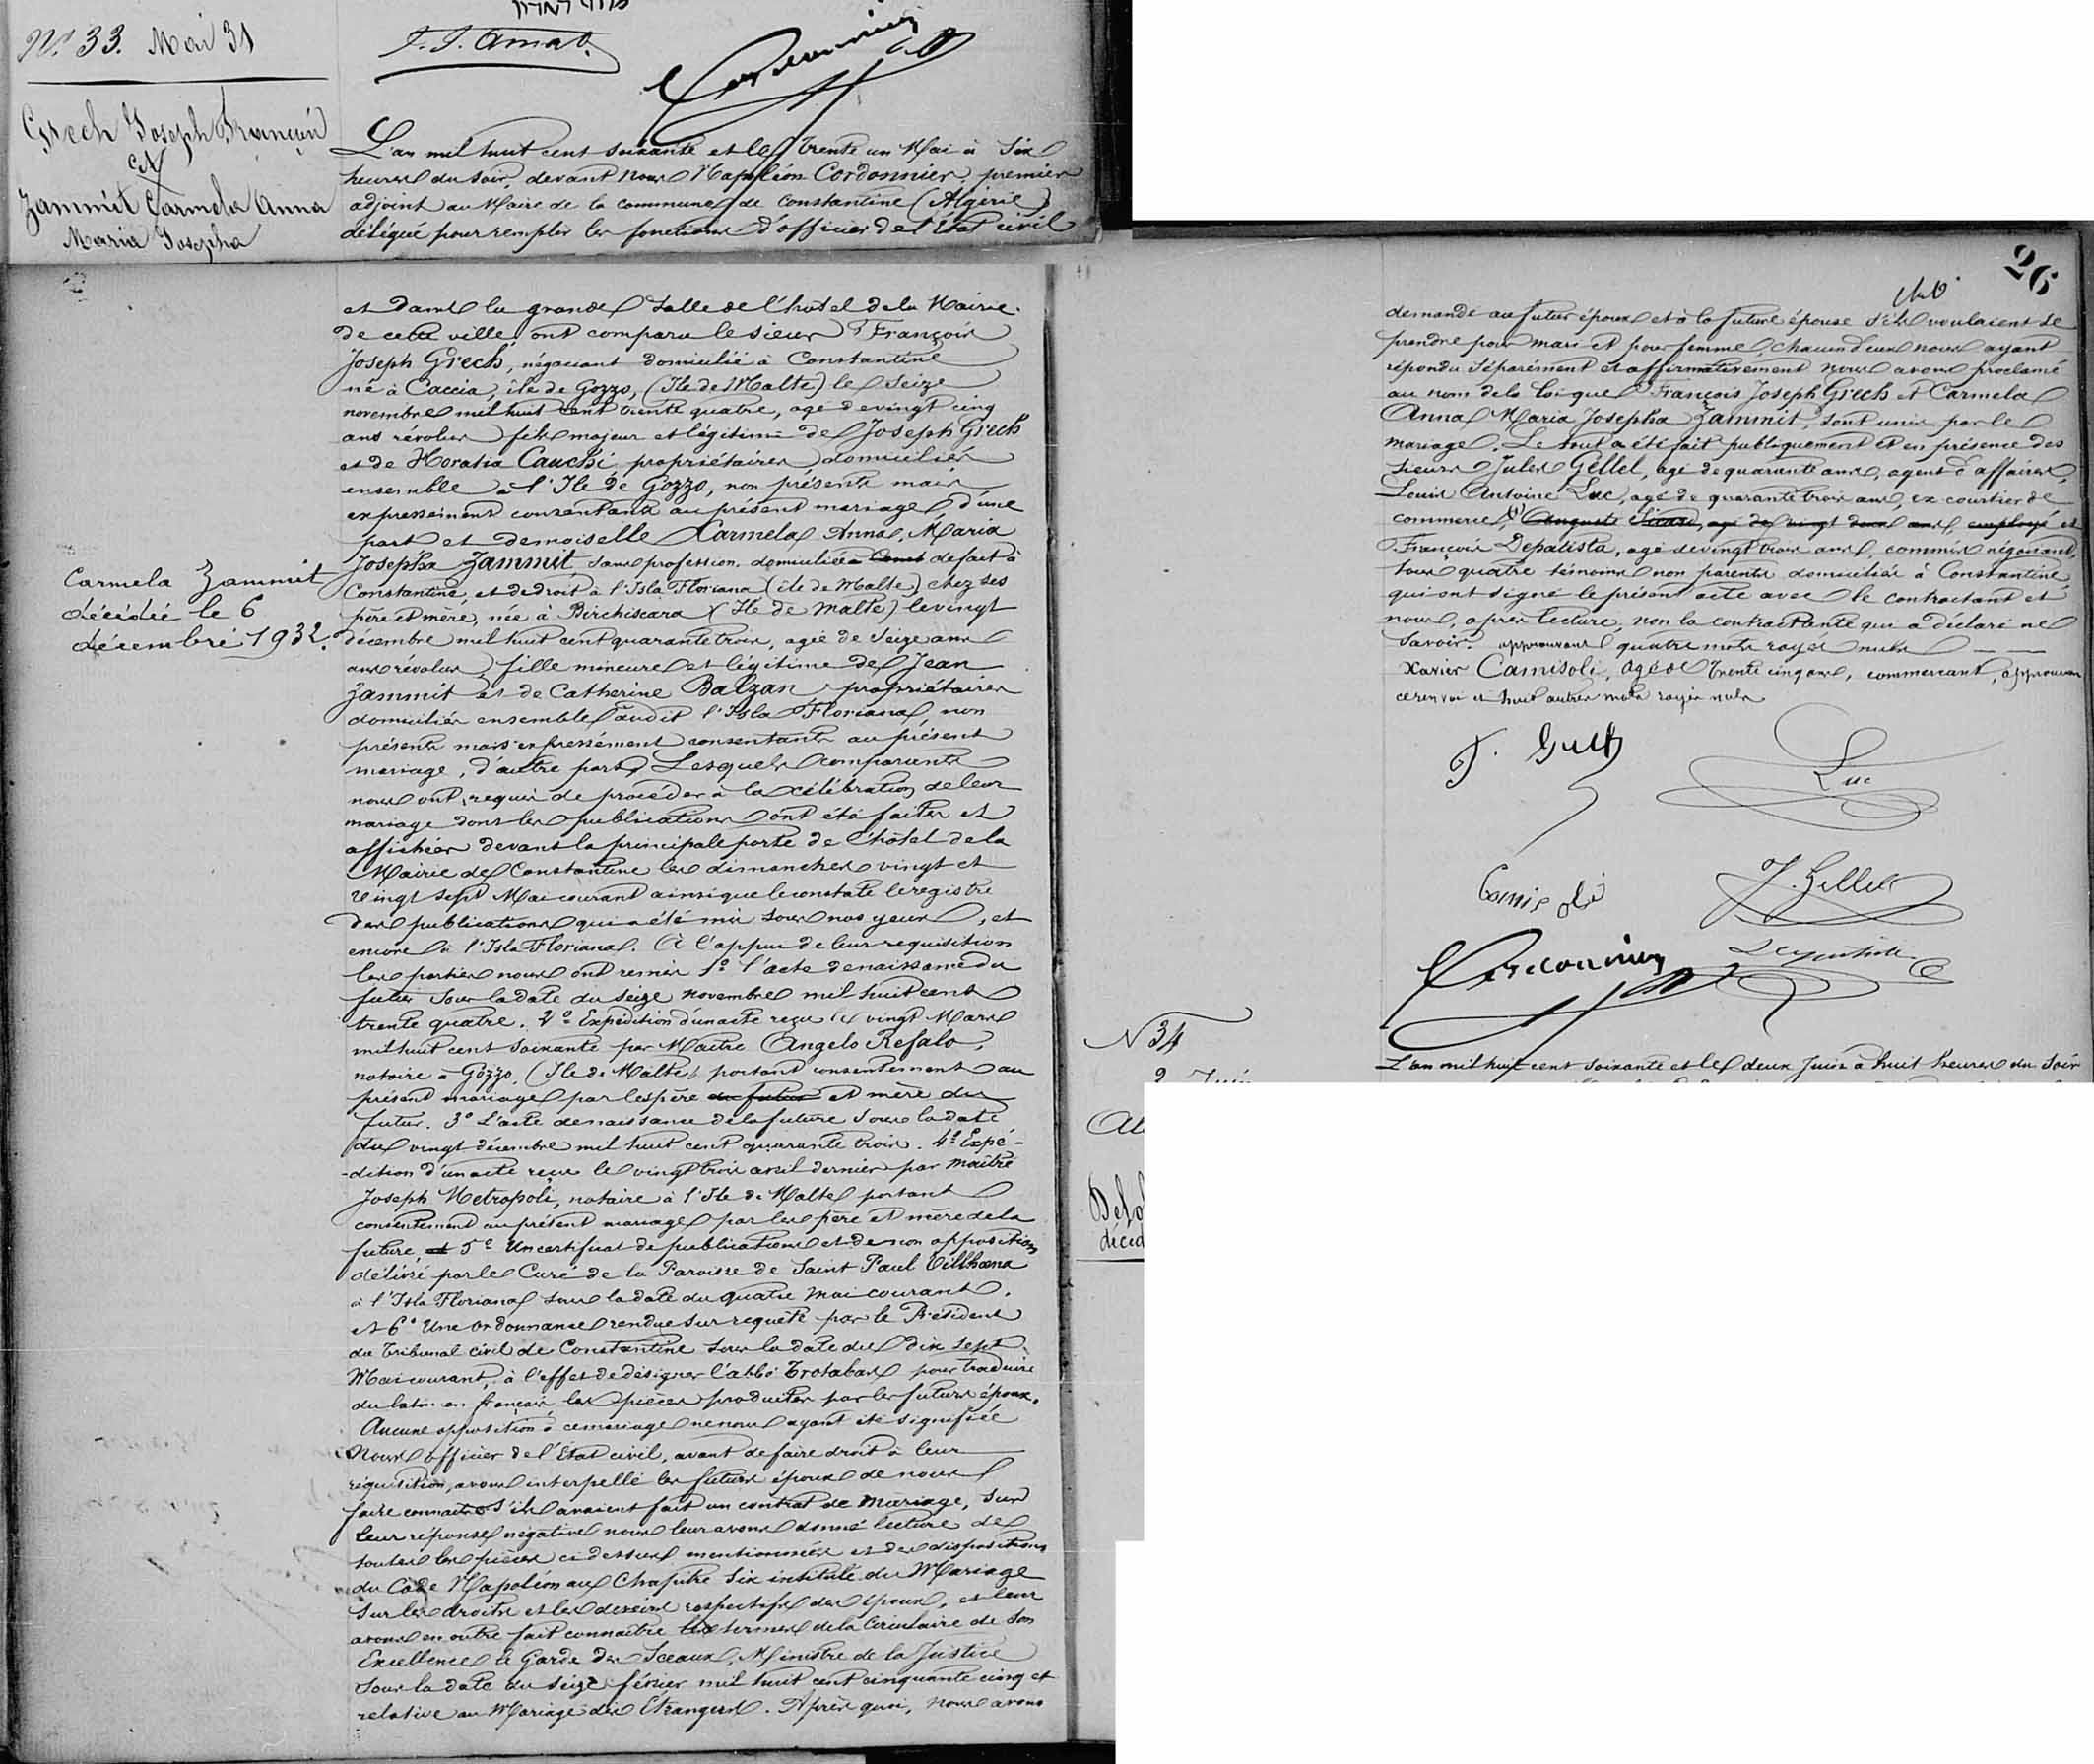 N.° 33. Mai 31
Grech Joseph François
et
Zammit Carmela Anna
Maria Josepha
J. J. Amat.
Cordonnier
L'an mil huit cent soixante et le trente un Mai à six
heures du soir, devant Nous Napoléon Cordonnier, premier
adjoint au Maire de la commune de Constantine (Algérie)
délégué pour remplir les fonctions d'officier de l'État civil
et dans la grande salle de l'hôtel de la Mairie
de cette ville, ont comparu le sieur François
Joseph Grech, négociant domicilié à Constantine
né à Caccia, île de Gozzo, (Ile de Malte) le seize
novembre mil huit cent trente quatre, agé de vingt cinq
ans révolus fils majeur et légitime de Joseph Grech
et de Horatia Cauchi propriétaires domiciliés
ensemble à l'Ile de Gozzo, non présents mais
expressément consentants au présent mariage, d'une
part et demoiselle Carmela, Anna, Maria
Josepha Zammit, sans profession, domiciliée à Const de fait à
Constantine, et de droit à l'Isla Floriana (île de Malte) chez ses
père et mère, née à Birchiscara (Ile de Malte) le vingt
décembre mil huit cent quarante trois, agée de seize ans
ans révolus fille mineure et légitime de Jean
Zammit et de Catherine Balzan, propriétaires
domiciliés ensemble audit l'Isla Floriana, non
présents mais expressément consentants au présent
mariage, d'autre part. Lesquels comparants
nous ont requis de procéder à la célébration de leur
mariage dont les publications ont été faites et
affichées devant la principale porte de l'hôtel de la
Mairie de Constantine les dimanches vingt et
vingt sept Mai courant ainsi que le constate le registre
des publications qui a été mis sous nos yeux, et
encore à l'Isla Floriana. A l'appui de leur requisition
les parties nous ont remis 1° l'acte de naissance du
futur sous la date du seize novembre mil huit cent
trente quatre. 2° Expédition d'un acte reçu le vingt Mars
mil huit cent soixante par Maître Angelo Refalo,
notaire à Gozzo, (Ile de Malte) portant consentement au
présent mariage par les père du futur et mère du
futur. 3° L'acte de naissance de la future sous la date
du vingt décembre mil huit cent quarante trois. 4° Expé-
-dition d'un acte reçu le vingt trois avril dernier par maître
Joseph Metropoli, notaire à l'Ile de Malte portant
consentement au présent mariage par les père et mère de la
future, et 5° Un certificat de publications et de non opposition
délivré par le Curé de la Paroisse de Saint Paul
à l'Isla Floriana sous la date du quatre mai courant.
et 6° Une ordonnance rendue sur requête par le Président
du Tribunal civil de Constantine sous la date du dix sept
Mai courant, à l'effet de désigner l'abbé Trotabas pour traduire
du latin en français les pièces produites par les futurs époux.
Aucune opposition à ce mariage ne nous ayant été signifiée
Nous officier de l'État civil, avant de faire droit à leur
réquisition, avons interpellé les futurs époux de nous
faire connaître s'ils avaient fait un contrat de mariage, sur
leur réponse négative nous leur avons donné lecture de
toutes les pièces ci dessus mentionnées et des dispositions
du Code Napoléon au Chapitre six intitulé du Mariage
sur les droits et les devoirs respectifs des époux, et leur
avons en outre fait connaître les termes de la Circulaire de Son
Excellence le Garde des Sceaux, Ministre de la Justice
sous la date du seize février mil huit cent cinquante cinq et
relative au Mariage des Etrangers. Après quoi, nous avons
Carmela Zammit
décédée le 6
décembre 1932.
26
demandé au futur époux et à la future épouse s'ils voulaient se
prendre pour mari et pour femme, chacun d'eux nous ayant
répondu séparément et affirmativement nous avons proclamé
au nom de la loi que François Joseph Grech et Carmela
Anna Maria Josepha Zammit, sont unis par le
mariage. Le tout a été fait publiquement et en présence des
sieurs Jules Gellel, agé de quarante ans, agent d'affaires,
Louis Antoine Luc, agé de quarante trois ans, ex-courtier de
commerce, Auguste Sicard, agé de vingt deux ans, employé et
François Depatista, agé de vingt trois ans, commis négociant,
tous quatre témoins non parents domiciliés à Constantine
qui ont signé le présent acte avec le contractant et
nous, après lecture, non la contractante qui a déclaré ne
savoir. approuvant quatre mots rayés nuls
Xavier Camisoli, agé de trente cinq ans, commerçant, approuvan
ce renvoi et huit autres mots rayés nuls
F. Grech
Luc
Camisoli
J. Gellel
Cordonnier
N 34
2 Juin
L'an mil huit cent soixante et le deux Juin à huit heures du soir